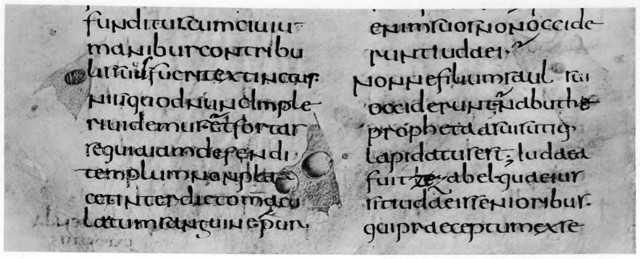 funditur cum ciuiu
manibus contribu
fuerit extinctus.
nisi quod nunc imple
ri uidemus et fortas
se quia iam defendi
templum non pla
cet interdicto macu
latum sanguine
enim suos non occide
runt iudaei
nonne filium saul sui
occiderunt nabuthe
propheta a suis
lapidatus est; iudaea
fuit zezabel quae ius
sit iudaeis senioribus.
qui praeceptum exse